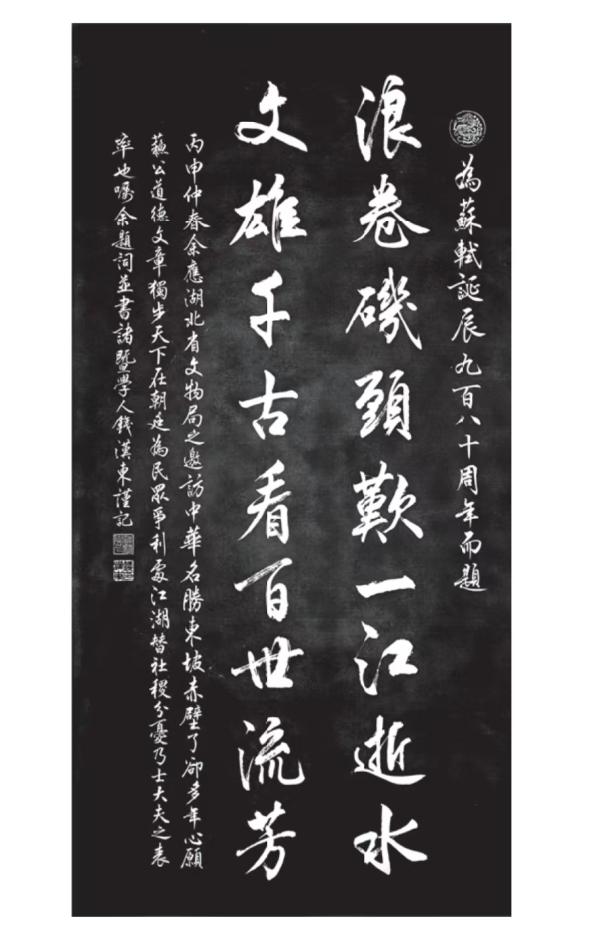 為蘇軾誕辰九百八十周年而題
浪卷磯頭歎一江逝水
文雄千古看百世流芳
丙申仲春余應湖北省文物局之邀訪中華名勝東坡赤壁了卻多年心願
蘇公道德文章獨步天下在朝廷為民眾爭利處江湖替社稷分憂乃士大夫之表
率也囑余題詞並書諸暨學人錢漢東謹記